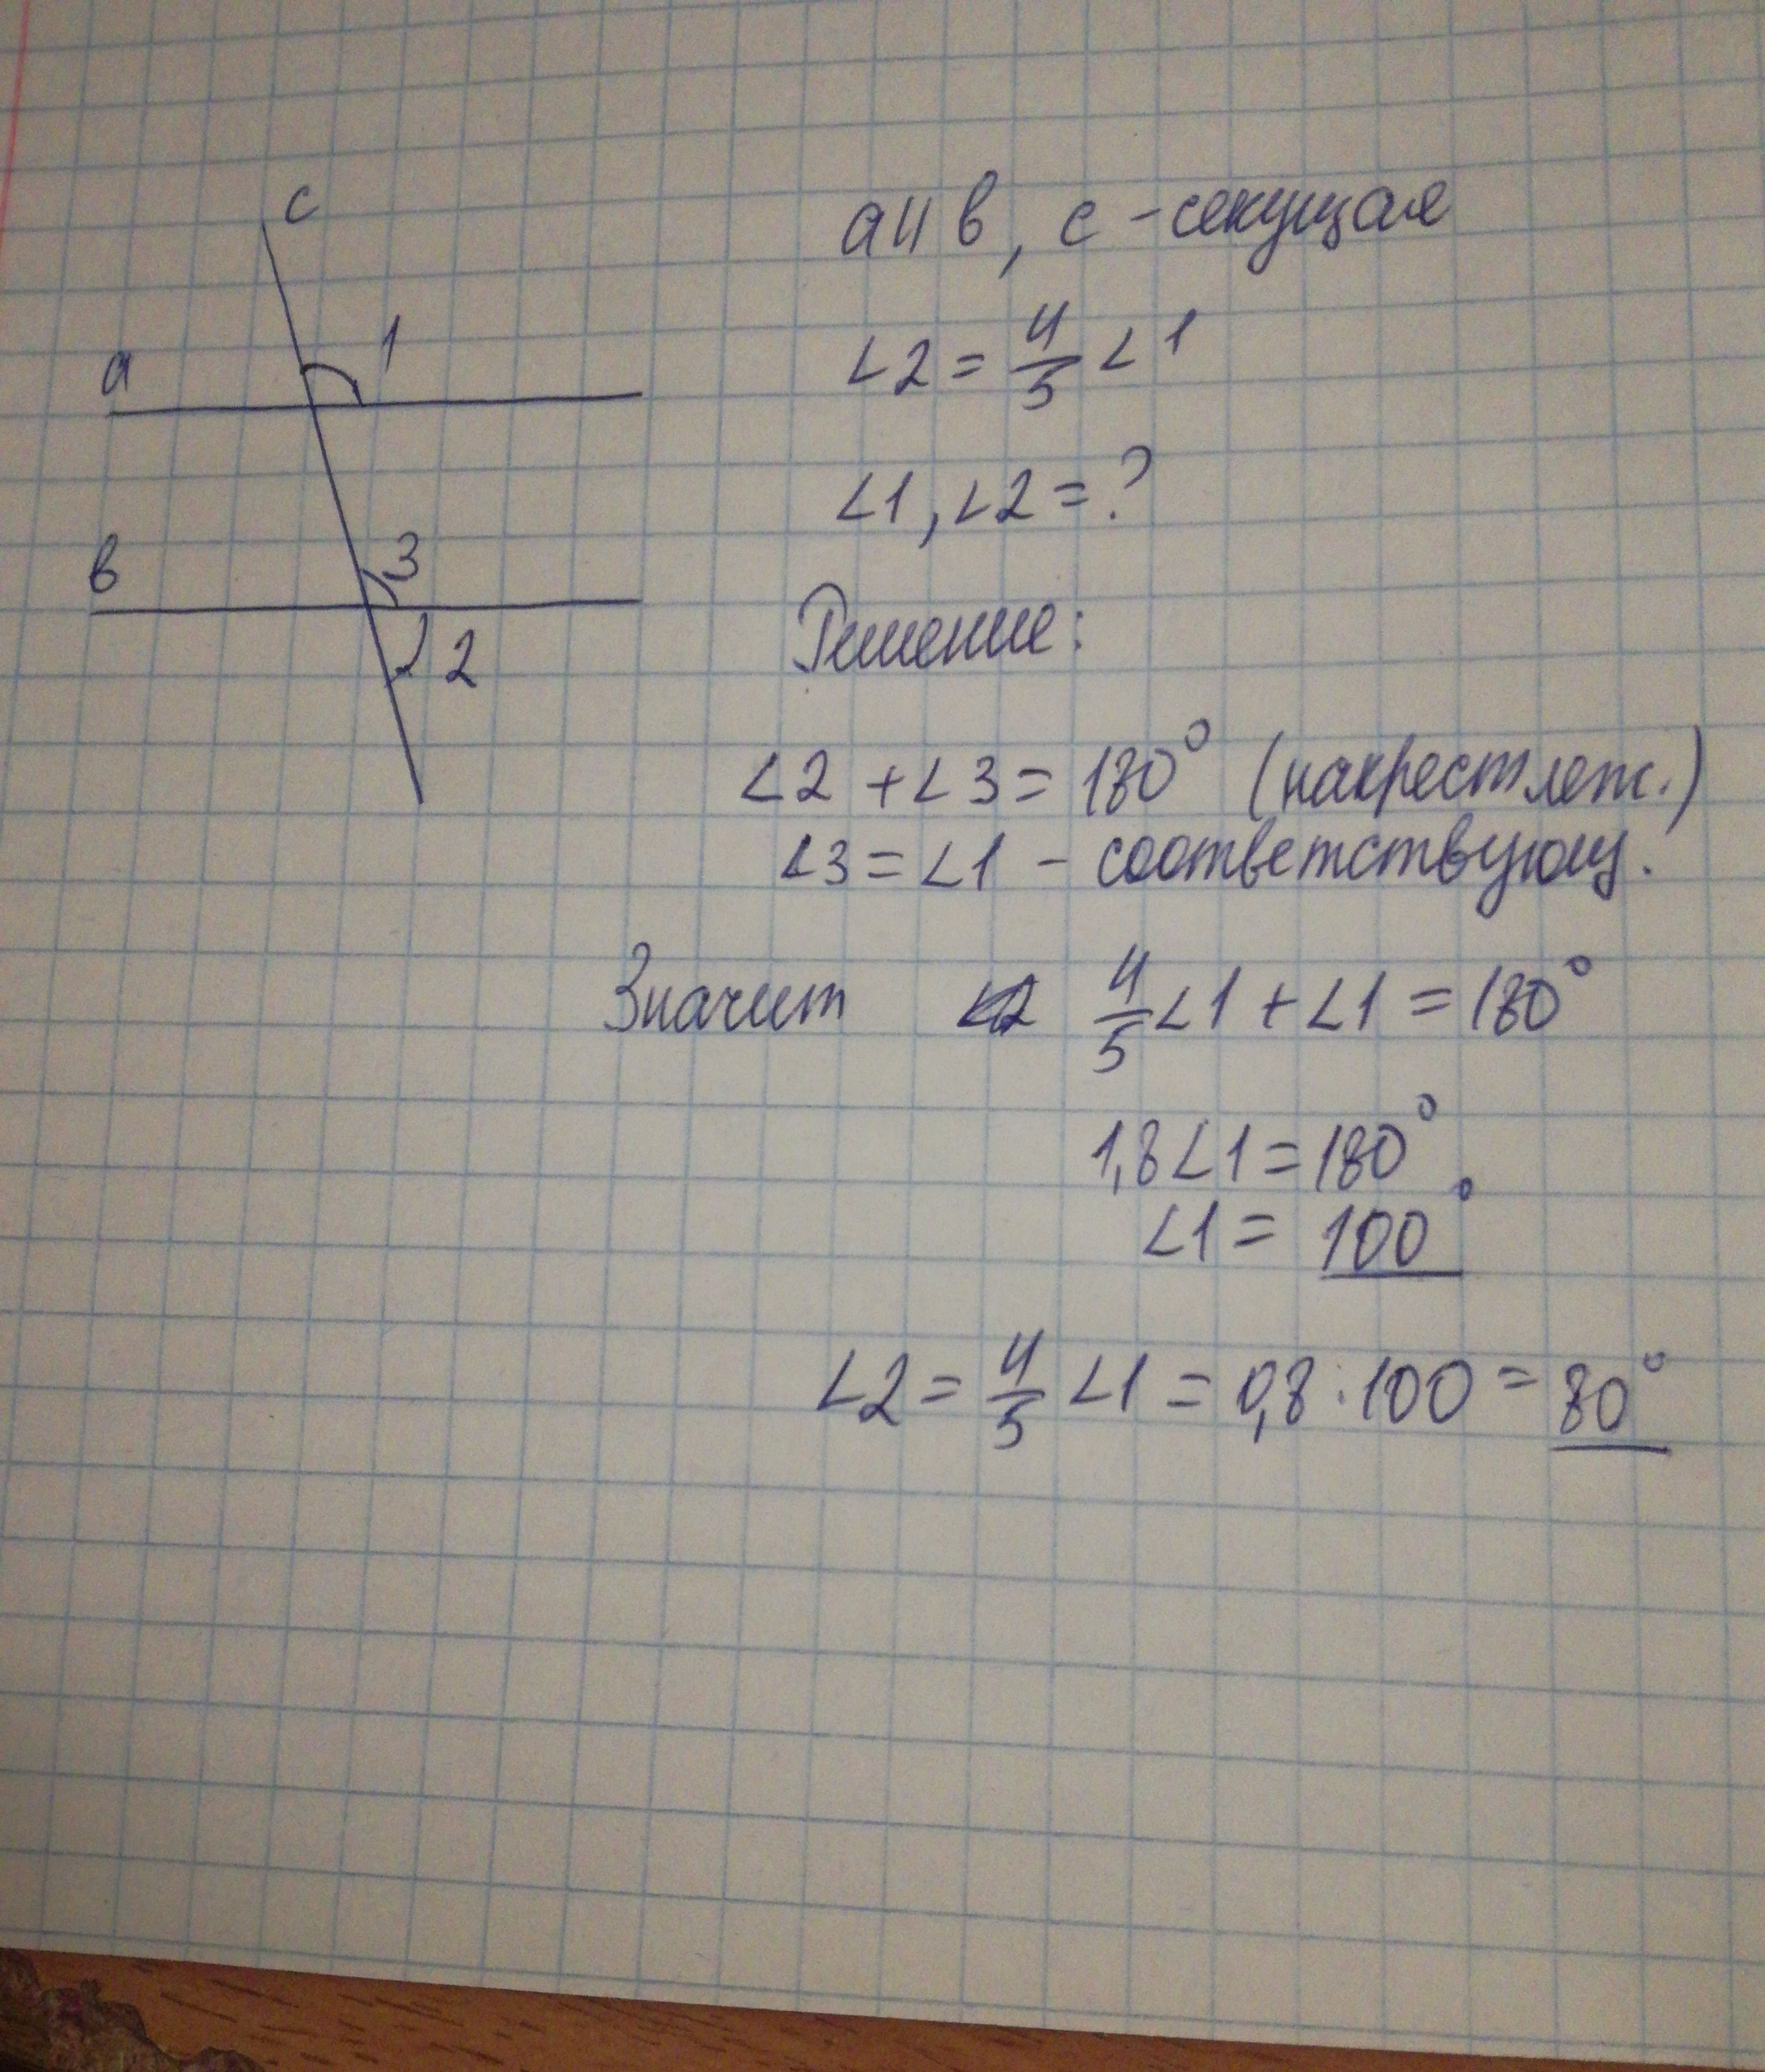 c
a
1
в
3
2
a || в, c - секущая
∠2 = 4/5 ∠1
∠1, ∠2 = ?
Решение:
∠2 + ∠3 = 180° (накрест леж.)
∠3 = ∠1 - соответствующ.
Значит ∠2 4/5 ∠1 + ∠1 = 180°
1,8∠1 = 180°
∠1 = 100°
∠2 = 4/5 ∠1 = 0,8 · 100 = 80°